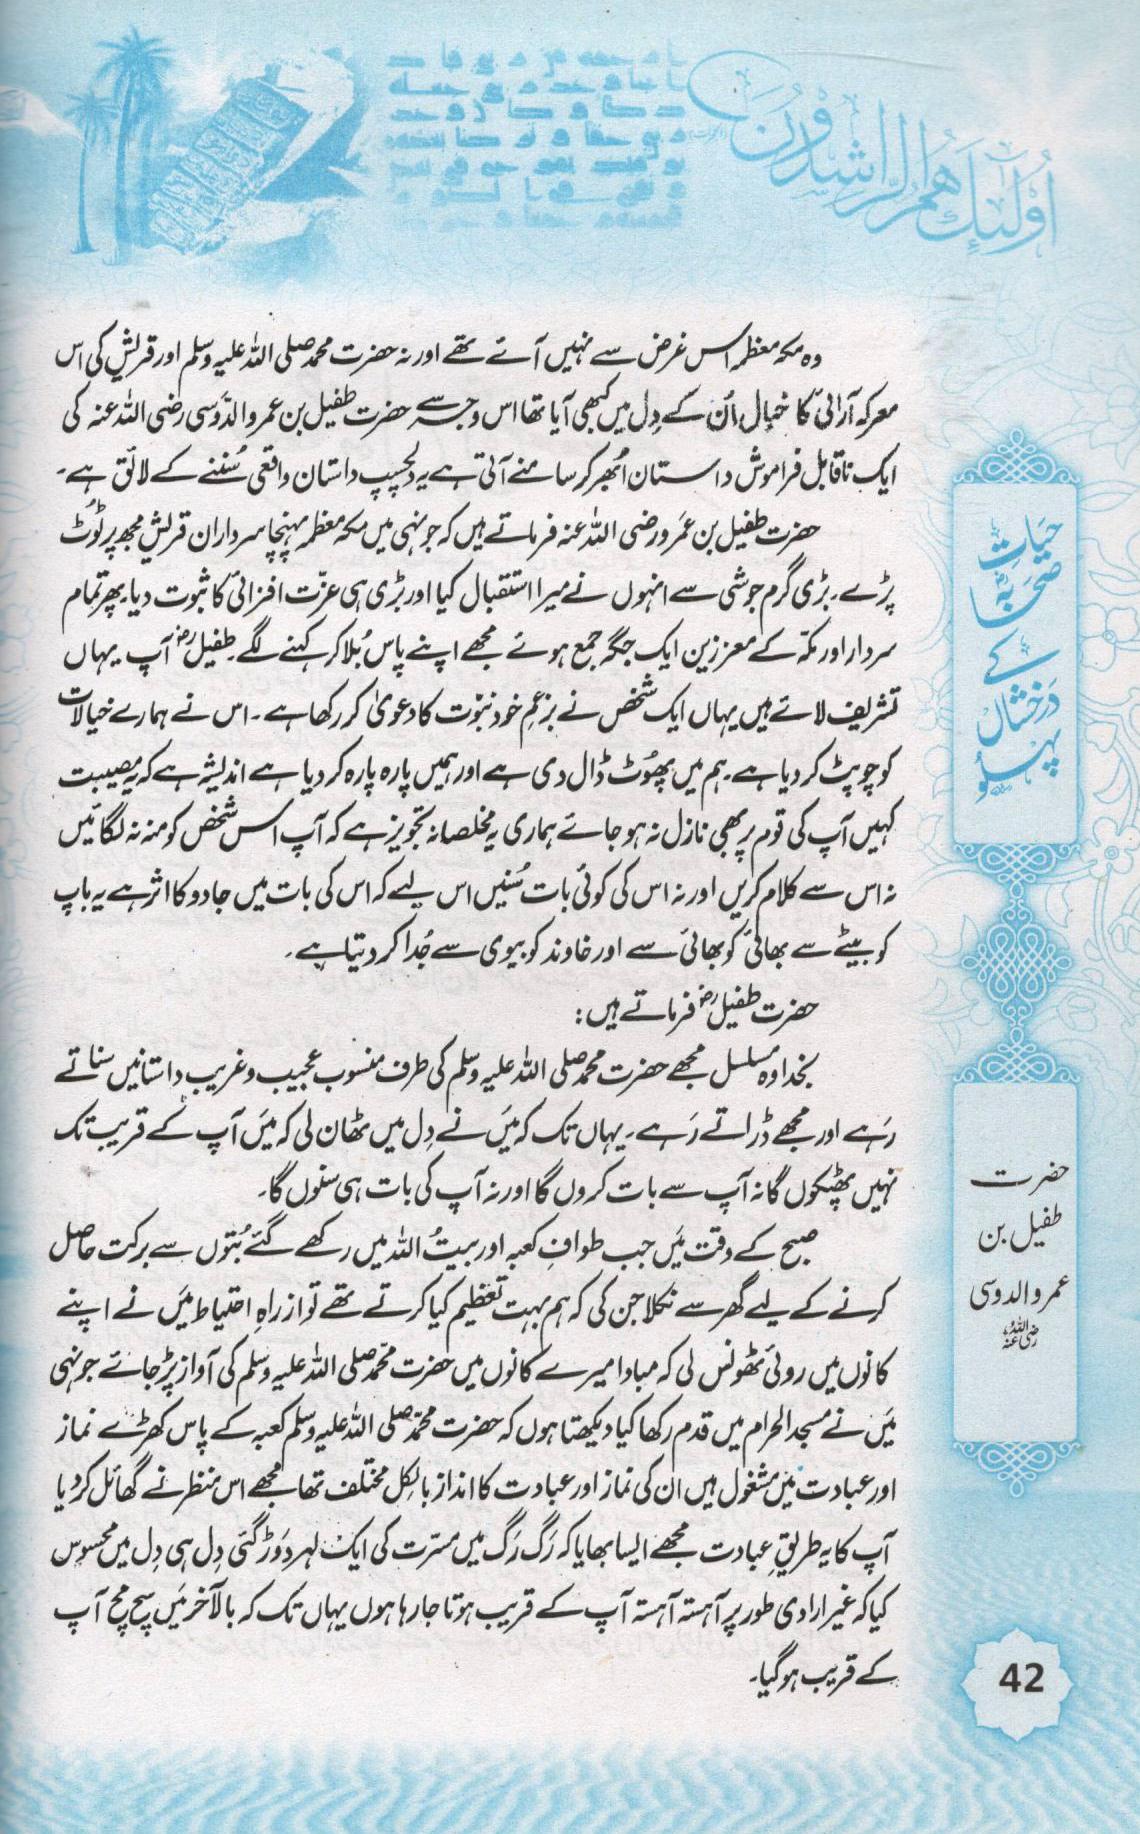 اُولٰٓئِكَ هُمُ الرّٰشِدُوْنَ
وہ مکہ معظمہ اس غرض سے نہیں آئے تھے اور نہ حضرت محمد صلی اللہ علیہ وسلم اور قریش کی اس
معرکہ آرائی کا خیال اُن کے دِل میں کبھی آیا تھا اس وجہ سے حضرت طفیل بن عمرو الدَّوسی رضی اللہ عنہ کی
ایک ناقابل فراموش داستان اُبھر کر سامنے آتی ہے یہ دلچسپ داستان واقعی سُننے کے لائق ہے۔
حضرت طفیل بن عمَرو رضی اللہ عنہ فرماتے ہیں کہ جونہی میں مکہ معظمہ پہنچا سرداران قریش مجھ پر ٹوُٹ
پڑے۔ بڑی گرم جوشی سے انہوں نے میرا استقبال کیا اور بڑی ہی عزّت افزائی کا ثبوت دیا۔ پھر تمام
سردار اور مکّہ کے معززین ایک جگہ جمع ہوئے مجھے اپنے پاس بُلا کر کہنے لگے۔ طفیل رضؓ آپ یہاں
تشریف لائے ہیں یہاں ایک شخص نے بزعمِ خود نبوّت کا دعویٰ کر رکھا ہے۔ اس نے ہمارے خیالات
کو چوپٹ کر دیا ہے۔ ہم میں پھوُٹ ڈال دی ہے اور ہمیں پارہ پارہ کر دیا ہے اندیشہ ہے کہ یہ مصیبت
کہیں آپ کی قوم پر بھی نازل نہ ہو جائے ہماری یہ مخلصانہ تجویز ہے کہ آپ اس شخص کو منہ نہ لگائیں
نہ اس سے کلام کریں اور نہ اس کی کوئی بات سُنیں اس لیے کہ اس کی بات میں جادو کا اثر ہے یہ باپ
کو بیٹے سے بھائی کو بھائی سے اور خاوند کو بیوی سے جُدا کر دیتا ہے۔
حضرت طفیل رضؓ فرماتے ہیں:
بخدا وہ مسلسل مجھے حضرت محمد صلی اللہ علیہ وسلم کی طرف منسوب عجیب و غریب داستانیں سناتے
رَہے اور مجھے ڈراتے رَہے۔ یہاں تک کہ مَیں نے دِل میں ٹھان لی کہ مَیں آپ کے قریب تک
نہیں پھٹکوں گا نہ آپ سے بات کروں گا اور نہ آپ کی بات ہی سنوں گا۔
صبح کے وقت مَیں جب طوافِ کعبہ اور بیتُ اللہ میں رکھے گئے بُتوں سے برکت حاصل
کرنے کے لیے گھر سے نکلا جن کی کہ ہم بہت تعظیم کیا کرتے تھے تو از راہِ احتیاط مَیں نے اپنے
کانوں میں روئی ٹھونس لی کہ مبادا میرے کانوں میں حضرت محمّد صلی اللہ علیہ وسلم کی آواز پڑ جائے جونہی
مَیں نے مسجد الحرام میں قدم رکھا کیا دیکھتا ہوں کہ حضرت محمّد صلی اللہ علیہ وسلم کعبہ کے پاس کھڑے نماز
اور عبادت میں مشغول ہیں ان کی نماز اور عبادت کا انداز بالکل مختلف تھا مجھے اس منظر نے گھائل کر دیا
آپ کا یہ طریقِ عبادت مجھے ایسا بھایا کہ رَگ رَگ میں مسرّت کی ایک لہر دَوڑ گئی دِل ہی دِل میں محسوس
کیا کہ غیر ارادی طور پر آہستہ آہستہ آپ کے قریب ہوتا جا رہا ہوں یہاں تک کہ بالآخر مَیں سچ مچ آپ
کے قریب ہو گیا۔
حیَاتِ
صحَابہؓ
کے
دَرخشاں
پہلوُ
حضرت
طفیل بن
عمرو الدوسی
رضی اللہ عنہ
42